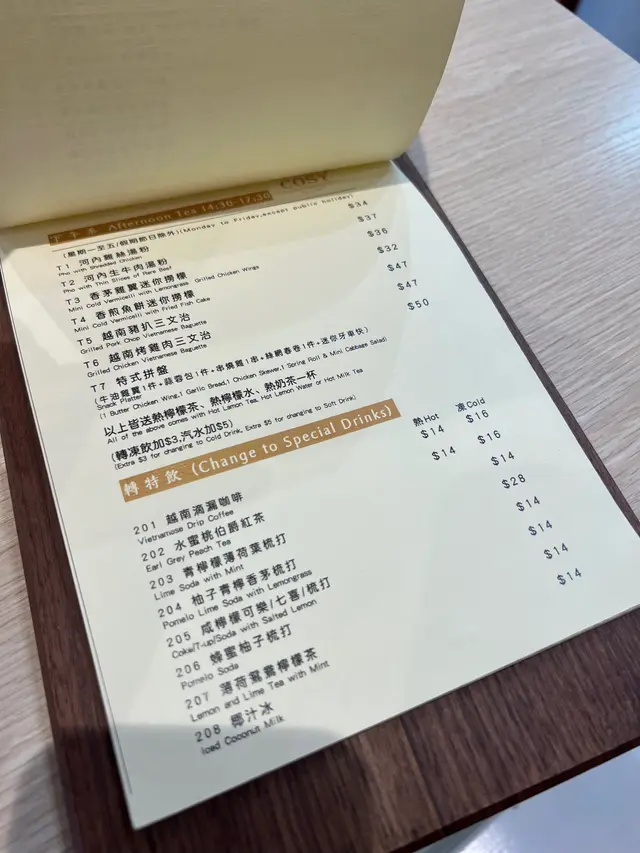 COSY
下午茶 Afternoon Tea 14:30-17:30
(星期一至五/假期節日除外)(Monday to Friday,except public holiday)
T1 河內雞絲湯粉 $34
Pho with Shredded Chicken
T2 河內生牛肉湯粉 $37
Pho with Thin Slices of Rare Beef
T3 香茅雞翼迷你撈檬 $36
Mini Cold Vermicelli with Lemongrass Grilled Chicken Wings
T4 香煎魚餅迷你撈檬 $32
Mini Cold Vermicelli with Fried Fish Cake
T5 越南豬扒三文治 $47
Grilled Pork Chop Vietnamese Baguette
T6 越南烤雞肉三文治 $47
Grilled Chicken Vietnamese Baguette
T7 特式拼盤 $50
(牛油雞翼1件+蒜蓉包1件+串燒雞1串+絲網春卷1件+迷你牙車快)
Snack Platter
(1 Butter Chicken Wing,1 Garlic Bread,1 Chicken Skewer,1 Spring Roll & Mini Cabbage Salad)
以上皆送熱檸檬茶、熱檸檬水、熱奶茶一杯
All of the above comes with Hot Lemon Tea, Hot Lemon Water or Hot Milk Tea
(轉凍飲加$3,汽水加$5)
(Extra $3 for changing to Cold Drink, Extra $5 for changing to Soft Drink)
轉特飲 (Change to Special Drinks)
熱Hot 凍Cold
201 越南滴漏咖啡 $14 $16
Vietnamese Drip Coffee
202 水蜜桃伯爵紅茶 $14 $16
Earl Grey Peach Tea
203 青檸檬薄荷葉梳打 $14
Lime Soda with Mint
204 柚子青檸香茅梳打 $28
Pomelo Lime Soda with Lemongrass
205 咸檸檬可樂/七喜/梳打 $14
Coke/7-up/Soda with Salted Lemon
206 蜂蜜柚子梳打 $14
Pomelo Soda
207 薄荷鴛鴦檸檬茶 $14
Lemon and Lime Tea with Mint
208 椰汁冰 $14
Iced Coconut Milk